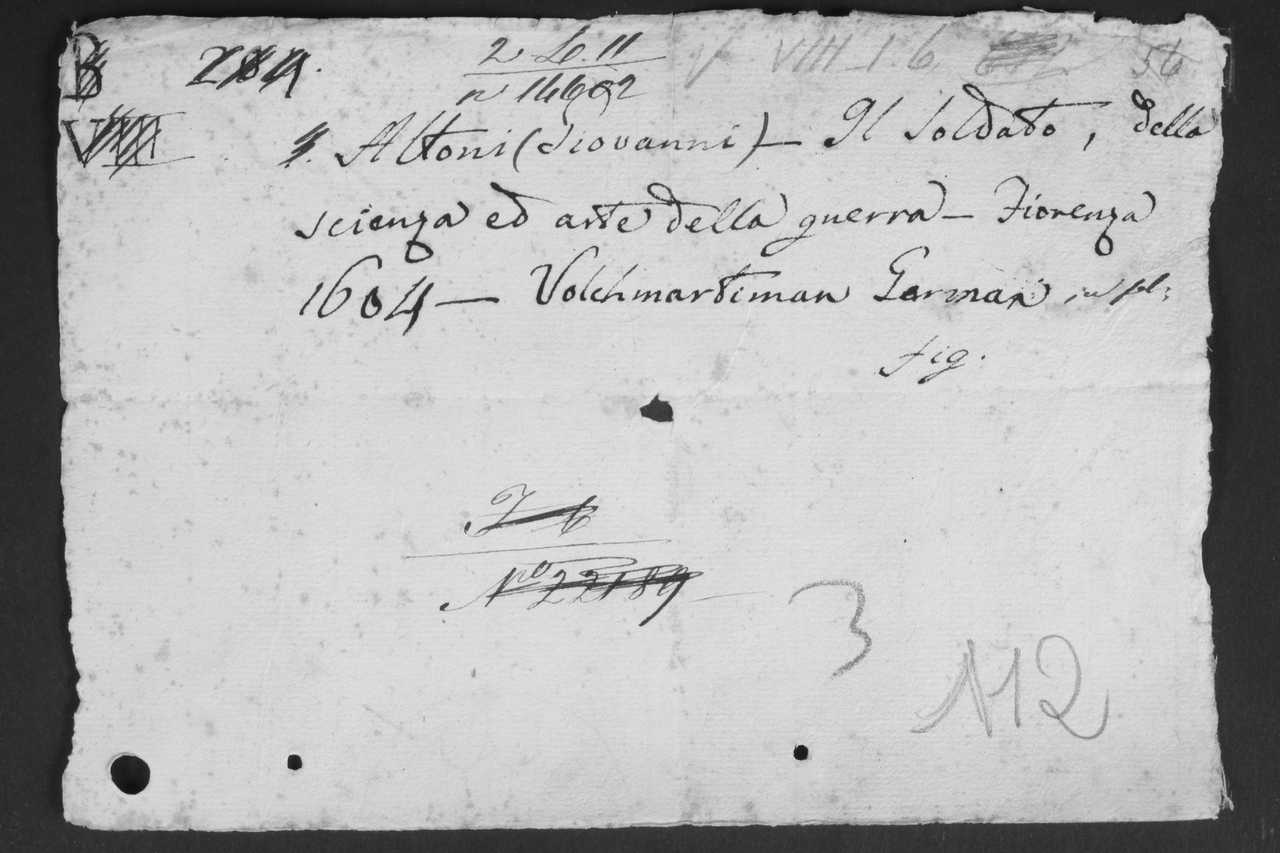 B 284. 2 L. 11 VIII I. 6. 56
n 14692
VIII 3. Altoni (Giovanni) – Il Soldato, della
scienza ed arte della guerra – Fiorenza
1604 – Volchmartiman German in fol:
fig.
I 6
Nro 22189
3
112